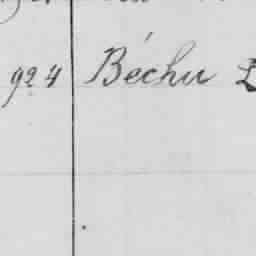 924 Béchu